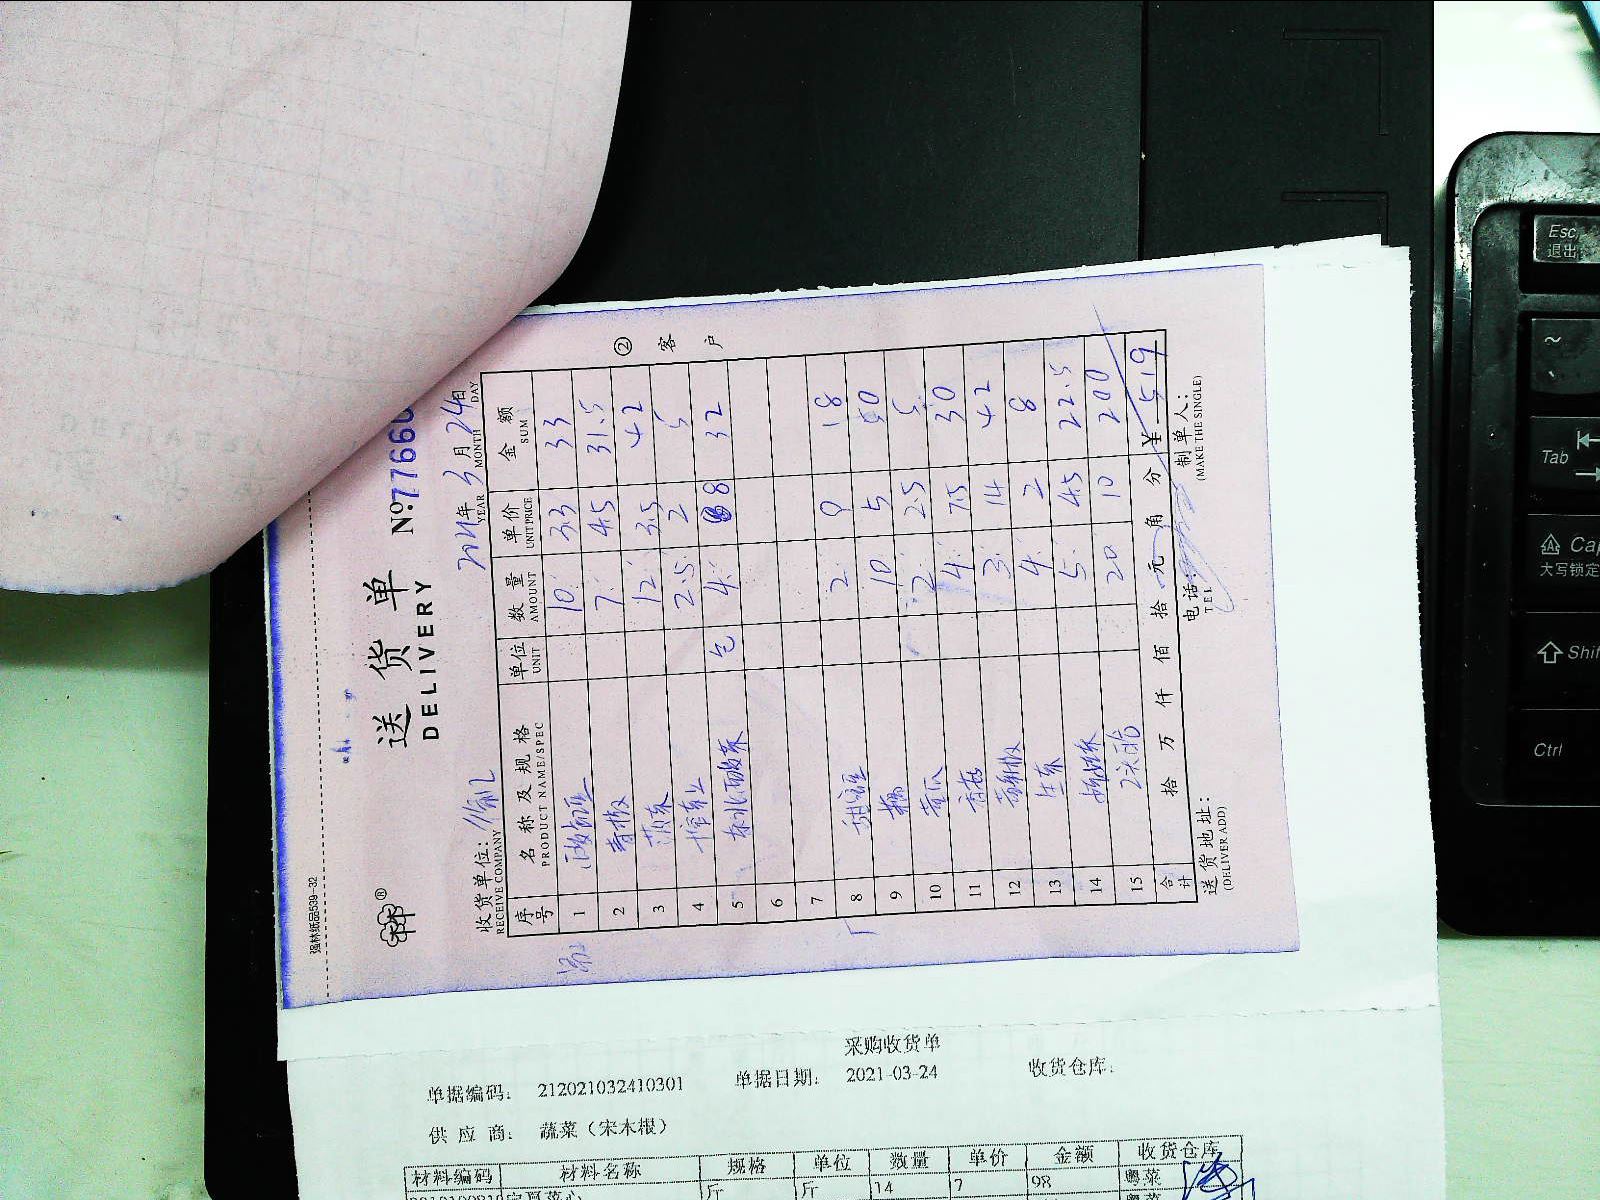 强林纸品539-32
送 货 单
DELIVERY
№77660
2021年 3月 24日
YEAR MONTH DAY
收货单位:
RECEIVE COMPANY
② 客户
序号 名称及规格 单位 数量 单价 金额
PRODUCT NAME/SPEC UNIT AMOUNT UNIT PRICE SUM
1 10 3.3 33
2 青椒 7 4.5 31.5
3 12 3.5 42
4 2.5 2 5
5 东北酸菜 包 4 8 32
6
7 2 9 18
8 10 5 50
9 黄瓜 2 2.5 5
10 4 7.5 30
11 3 14 42
12 4 2 8
13 5 4.5 22.5
14 20 10 200
15
合计 拾 万 仟 佰 拾 元 角 分 ¥ 519
送货地址: 电话: 制单人:
(DELIVER ADD) TEL (MAKE THE SINGLE)
采购收货单
单据编码: 212021032410301 单据日期: 2021-03-24 收货仓库:
供 应 商: 蔬菜（宋木根）
材料编码 材料名称 规格 单位 数量 单价 金额 收货仓库
宁夏菜心 斤 斤 14 7 98 粤菜
粤菜
Esc
退出
~
Tab
Cap
大写锁定
Shif
Ctrl